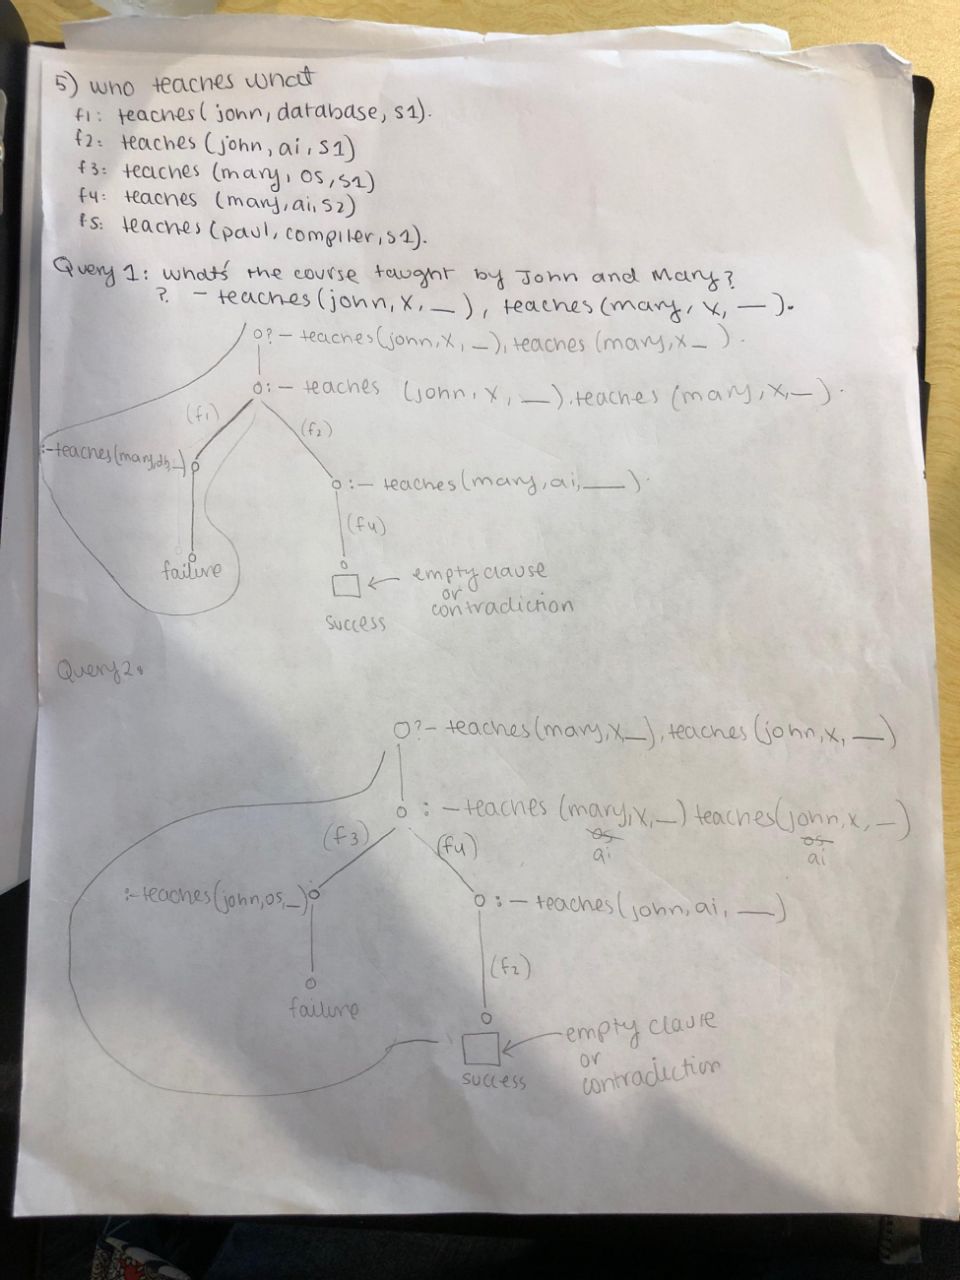 5) who teaches what
f1: teaches(john, database, s1).
f2: teaches (john, ai, s1)
f3: teaches (mary, os, s1)
f4: teaches (mary, ai, s2)
f5: teaches (paul, compiler, s1).
Query 1: what's the course taught by John and Mary?
? - teaches (john, X, _), teaches (mary, X, _).
?- teaches(john, X, _), teaches (mary, X_ ).
:- teaches (john, X, _), teaches (mary, X, _).
(f1)
(f2)
:-teaches(mary, db, _)
:- teaches (mary, ai, __).
(f4)
failure
empty clause
or
contradiction
success
Query 2:
?- teaches (mary, X, _), teaches (john, X, _)
:- teaches (mary, X, _) teaches (john, X, _)
os os
ai ai
(f3) (f4)
:-teaches(john, os, _)
:- teaches (john, ai, __)
(f2)
failure
empty clause
or
contradiction
success